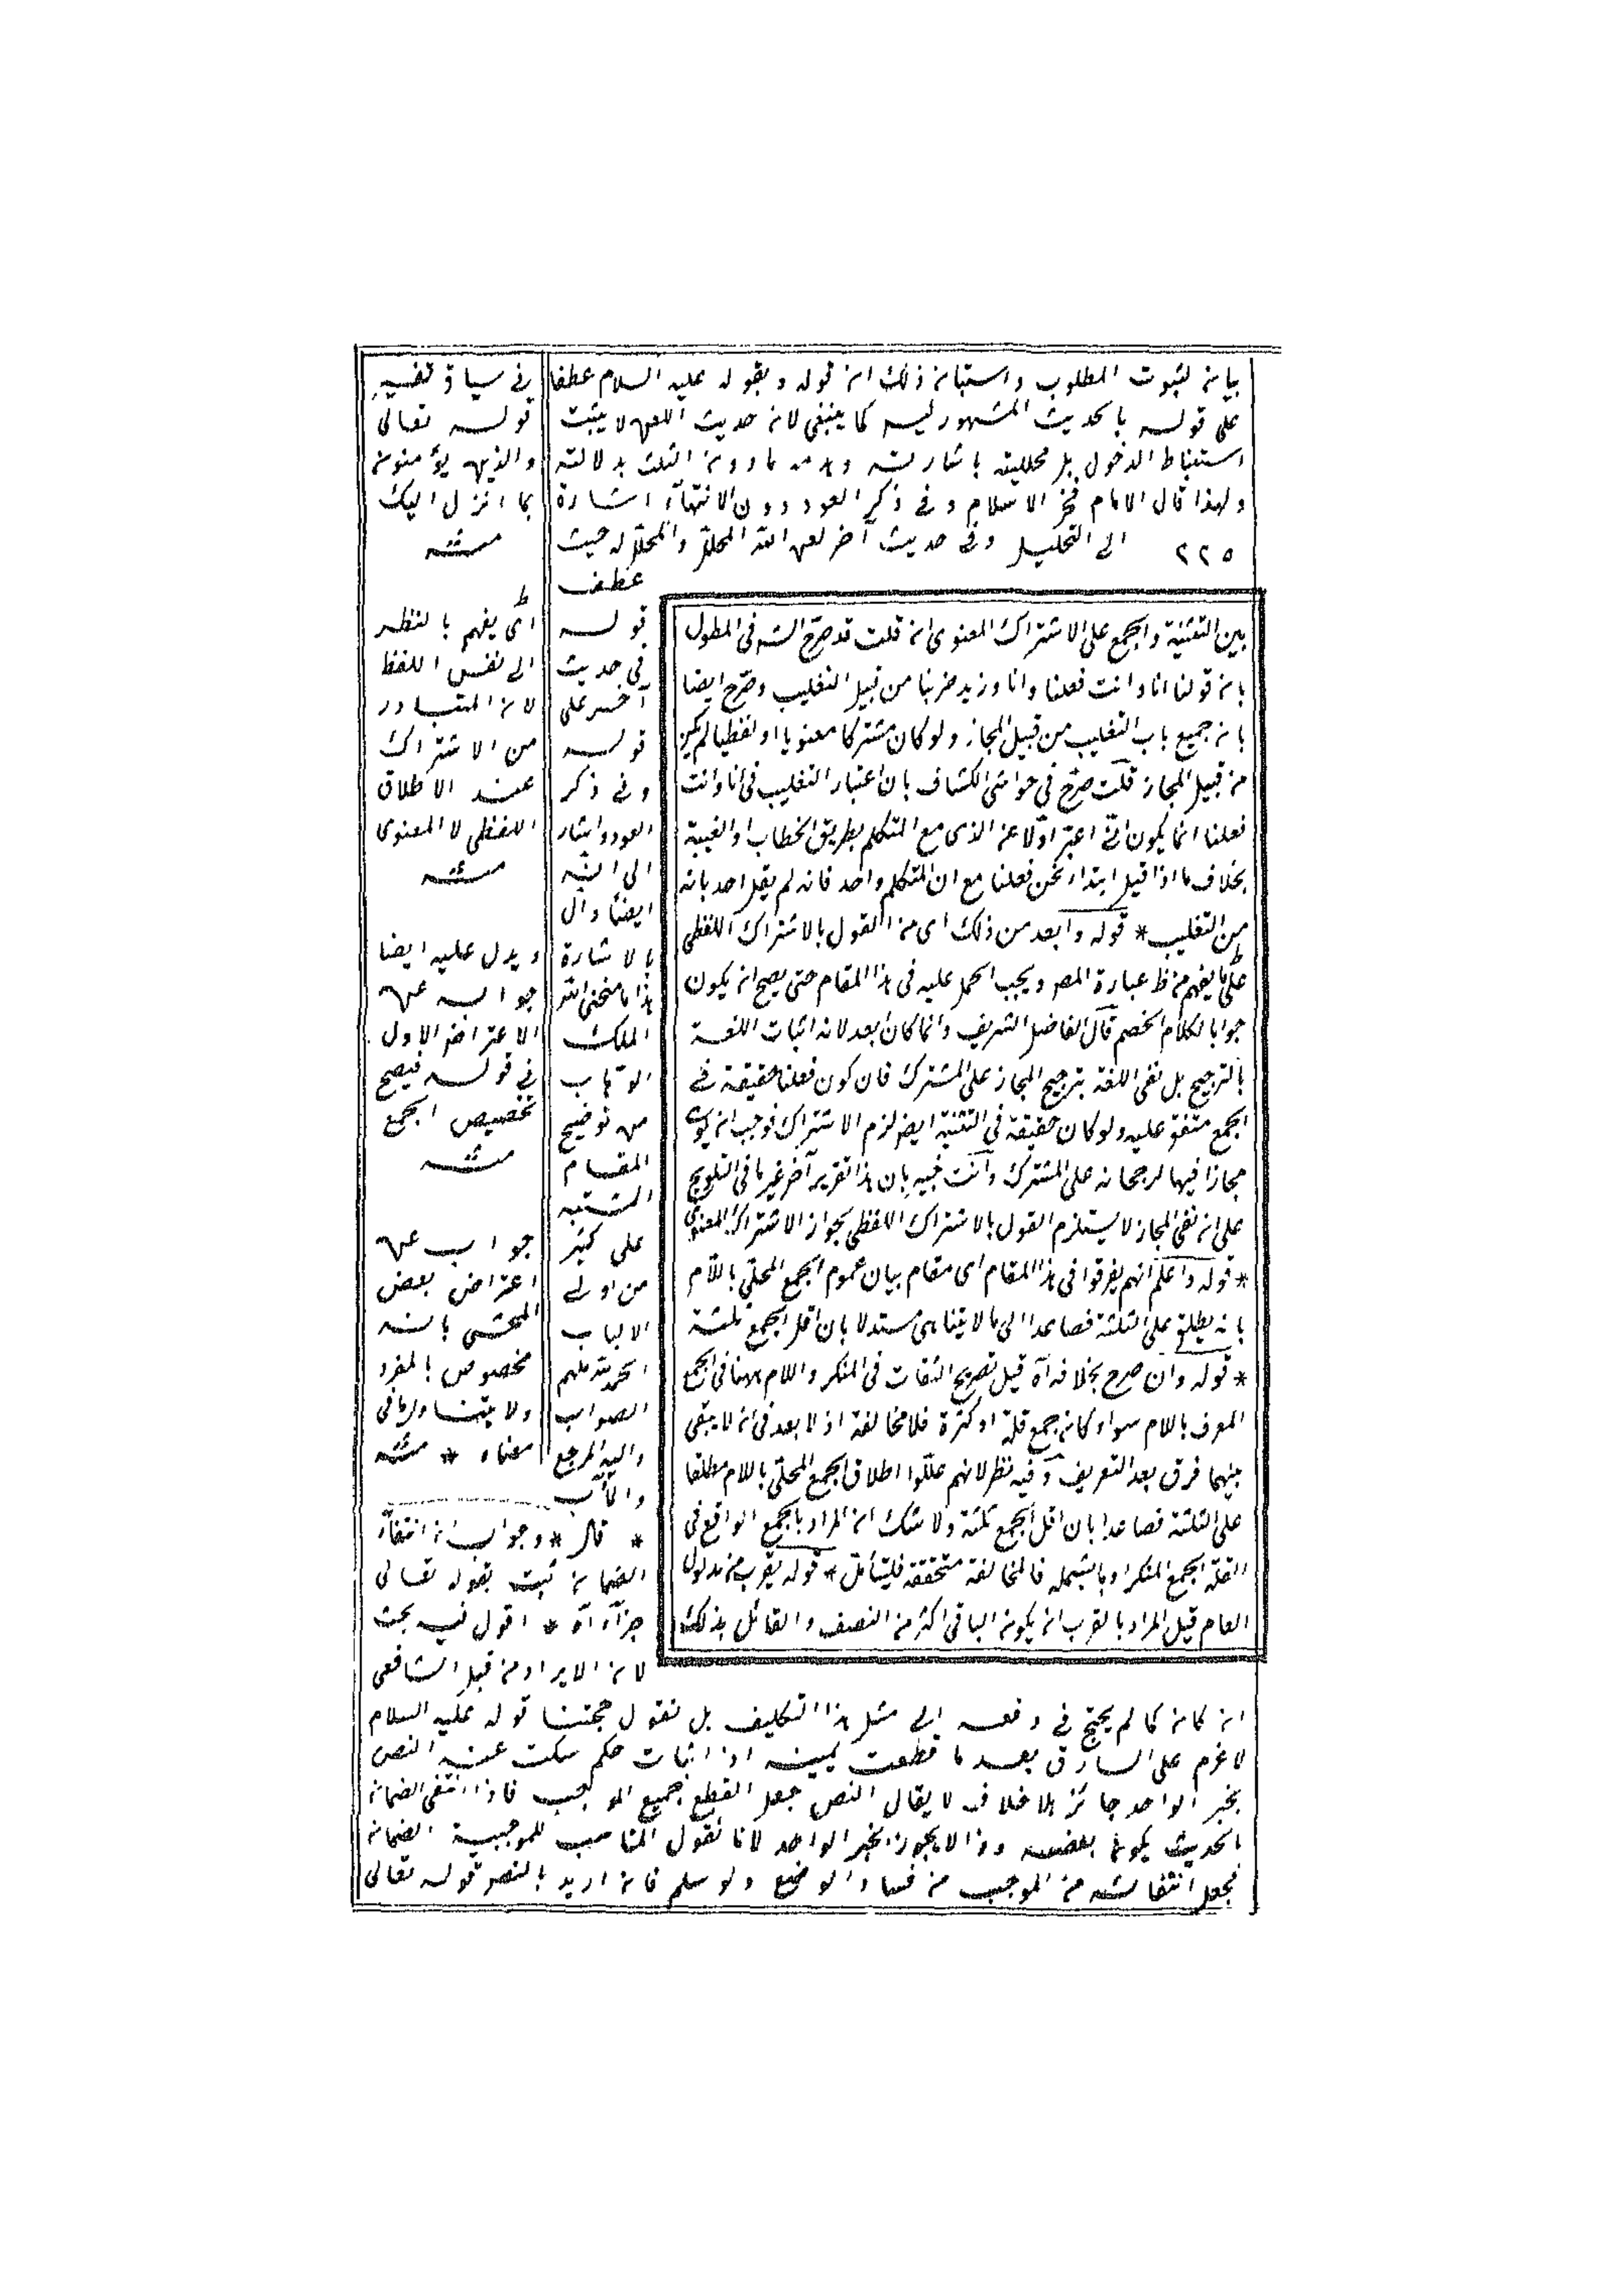 بيانه لثبوت المطلوب واستبانه ذلك ان قوله وبقوله عليه السلام عطفا
على قوله بالحديث المشهور ليس كما ينبغي لان حديث اللعن لا يثبت
استنباط الدخول بل محللية باشارته
ولهذا قال الامام فخر الاسلام وفي ذكر العود دون الانتهآء اشارة
الى التحليل وفي حديث آخر لعن الله المحلل والمحلل له حيث
٢٢٥
عطف
قوله
في حديث
آخر على
قوله
وفي ذكر
العود واشار
الى انه
ايضا دال
بالاشارة
هذا ما منحنى الله
الملك
الوهاب
من توضيح
المقام
المشتبه
على كثير
من اولى
الالباب
الحمد لله ملهم
الصواب
واليه المرجع
والمآب
* قال * وجوابه ان انتفآء
الضمان ثبت بقوله تعالى
جزآء آه * اقول فيه بحث
لان الايراد من قبل الشافعى
ان كان كما لم يحتج في دفعه الى مثل هذا التكليف بل نقول حجتنا قوله عليه السلام
لا غرم على السارق بعد ما قطعت يمينه اذ اثبات حكم سكت عنه النص
بخبر الواحد جائز بلا خلاف لا يقال النص جعل القطع جميع الموجب فاذا انتفى الضمان
بالحديث يكون بعضه وذا لا يجوز بخبر الواحد لانا نقول المناسب للموجبية الضمان
فجعل انتفائه من الموجب من فساد الوضع ولو سلم فان اريد بالنص قوله تعالى
بين التثنية والجمع على الاشتراك المعنوى ان قلت قد صرّح الشه في المطول
بان قولنا انا وانت فعلنا وانا وزيد ضربنا من قبيل التغليب وصرّح ايضا
بان جميع باب التغليب من قبيل المجاز ولو كان مشتركا معنويا او لفظيا لم يكن
من قبيل المجاز قلت صرّح في حواشى الكشاف بان اعتبار التغليب في انا وانت
فعلنا انما يكون اذا اعتبر اوّلا عن الذى مع المتكلم بطريق الخطاب او الغيبة
بخلاف ما اذا قيل ابتداء نحن فعلنا مع ان المتكلم واحد فانه لم يقل احد بانه
من التغليب * قوله وابعد من ذلك اى من القول بالاشتراك اللفظى
على ما يفهم من ظ عبارة المص ويجب الحمل عليه في هذا المقام حتى يصح ان يكون
جوابا لكلام الخصم قال الفاضل الشريف وانما كان ابعد لانه اثبات اللغة
بالترجيح بل نفى اللغة بترجيح المجاز على المشترك فان كون فعلنا حقيقة في
الجمع متفق عليه ولو كان حقيقة في التثنية ايضا لزم الاشتراك فوجب ان يكون
مجازا فيها لرجحانه على المشترك وانت خبير بان هذا تقرير آخر غير ما في التلويح
على ان نفى المجاز لا يستلزم القول بالاشتراك اللفظى بجواز الاشتراك المعنوى
* قوله واعلم انهم لم يفرقوا في هذا المقام اى مقام بيان عموم الجمع المحلّى باللام
بانه يطلق على الثلثة فصاعدا الى ما لا يتناهى مستدلا بان اقل الجمع ثلثة
* قوله وان صرح بخلافه آه قيل تصريح الثقات في المنكر والكلام ههنا في الجمع
المعرف باللام سواء كان جمع قلة او كثرة فلا مخالفة اذ لا بعد في ان لا يبقى
بينهما فرق بعد التعريف وفيه نظر لانهم علّلوا اطلاق الجمع المحلّى باللام مطلقا
على الثلثة فصاعدا بان اقل الجمع ثلثة ولا شك ان المراد بالجمع الواقع في
العلّة الجمع المنكر او ما يشمله فالمخالفة متحققة فليتأمل * قوله يقرب من مدلول
العام قيل المراد بالقرب ان يكون الباقى اكثر من النصف والقائل بذلك
في سياق تفسير
قوله تعالى
والذين يؤمنون
بما انزل اليك
منه
اى يفهم بالنظر
الى نفس اللفظ
لان المتبادر
من الاشتراك
عند الاطلاق
اللفظى لا المعنوى
منه
ويدل عليه ايضا
جوابه عن
الاعتراض الاول
في قوله فيصح
تخصيص الجمع
منه
جواب عن
اعتراض بعض
المحشى بانه
مخصوص بالمفرد
ولا يتناول ما في
معناه * منه